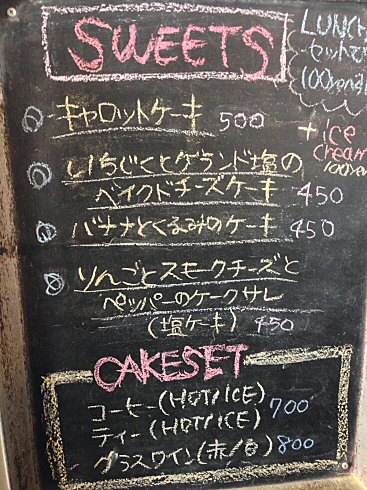 SWEETS
LUNCH
セットで
100yen
キャロットケーキ 500
+ ice
cream
100yen
いちじくとゲランド塩の
ベイクドチーズケーキ 450
バナナとくるみのケーキ 450
りんごとスモークチーズと
ペッパーのケークサレ
(塩ケーキ) 450
CAKESET
コーヒー(HOT/ICE) 700
ティー(HOT/ICE)
グラスワイン(赤/白) 800